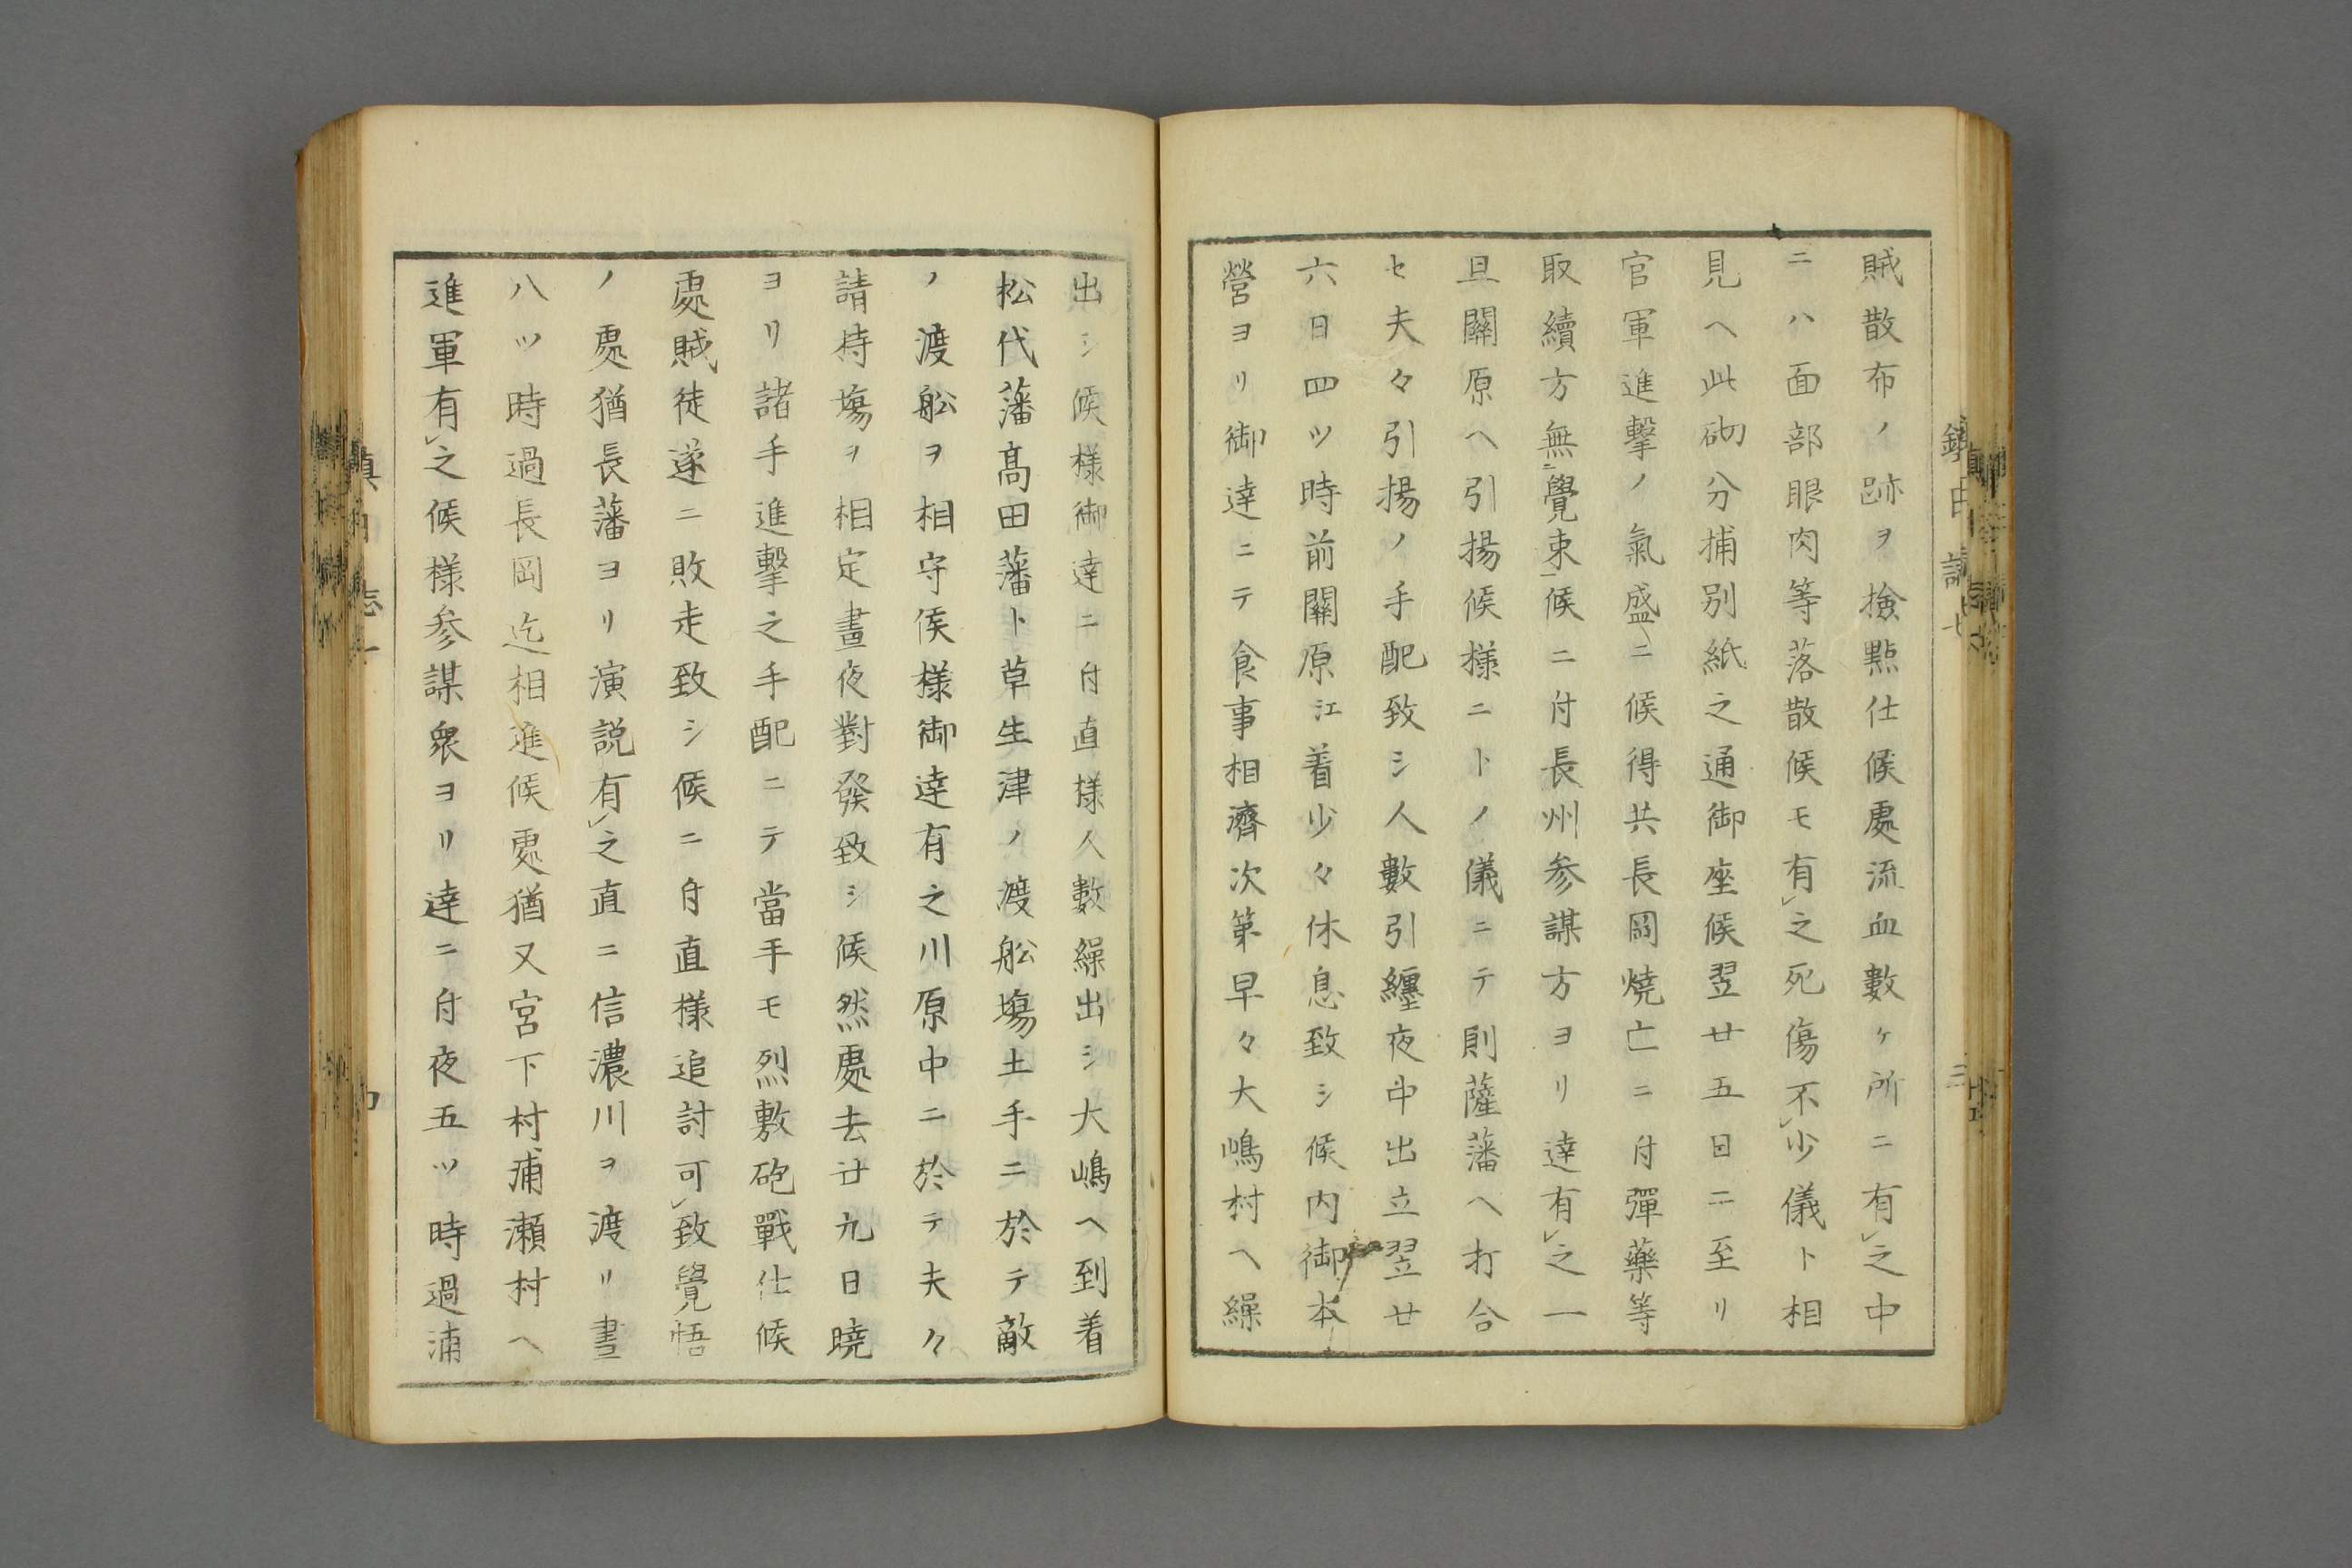 賊散布ノ跡ヲ撿點仕候處流血數ケ所ニ有レ之中
ニハ面部眼肉等落散候モ有レ之死傷不レ少儀ト相
見ヘ此砌分捕別紙之通御座候翌廿五日ニ至リ
官軍進擊ノ氣盛ニ候得共長岡燒亡ニ付彈藥等
取續方無二覺束一候ニ付長州参謀方ヨリ達有レ之一
旦關原ヘ引揚候様ニトノ儀ニテ則薩藩ヘ打合
セ夫々引揚ノ手配致シ人數引纒夜中出立翌廿
六日四ツ時前關原江着少々休息致シ候内御本
營ヨリ御達ニテ食事相濟次第早々大嶋村ヘ繰
出シ候様御達ニ付直様人數繰出シ大嶋ヘ到着
松代藩髙田藩ト草生津ノ渡舩塲土手ニ於テ敵
ノ渡舩ヲ相守候様御達有之川原中ニ於テ夫々
請持塲ヲ相定晝夜對發致シ候然處去廿九日曉
ヨリ諸手進擊之手配ニテ當手モ烈敷砲戰仕候
處賊徒遂ニ敗走致シ候ニ付直様追討可レ致覺悟
ノ處猶長藩ヨリ演説有レ之直ニ信濃川ヲ渡リ晝
八ツ時過長岡迄相進候處猶又宮下村浦瀬村ヘ
進軍有レ之候様参謀衆ヨリ達ニ付夜五ツ時過浦